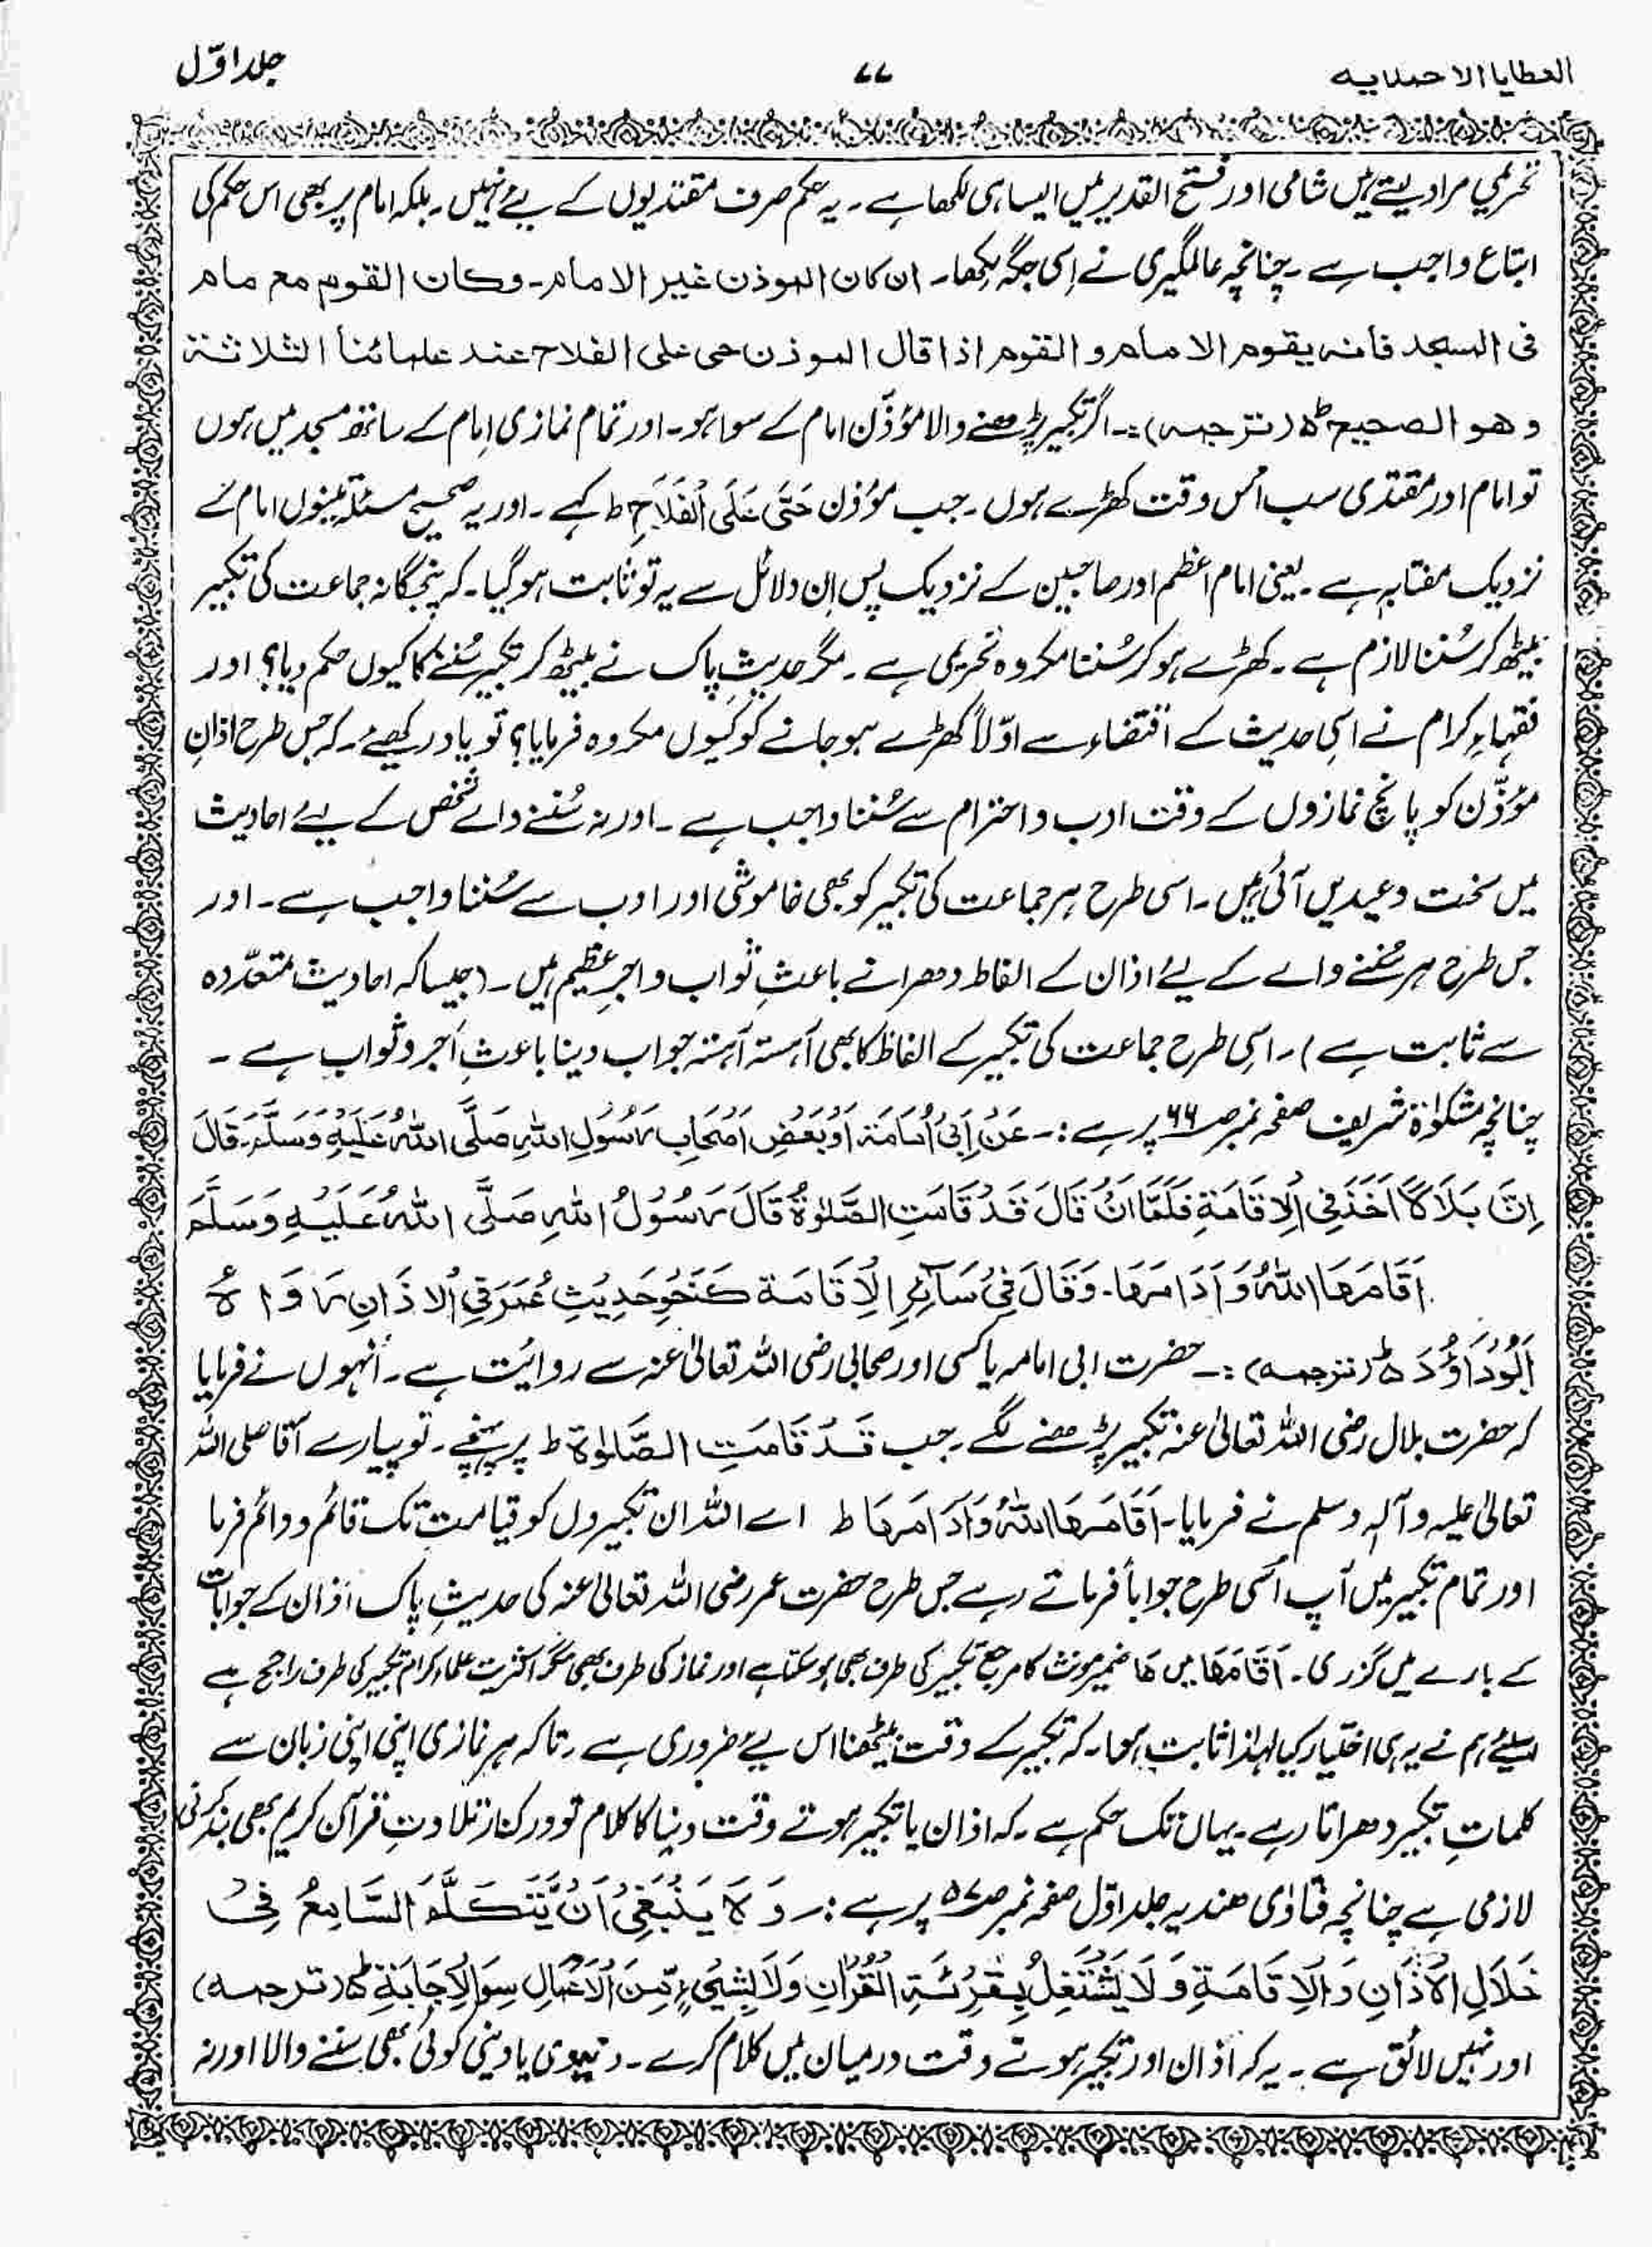 العطایا الاحمدیه ۷۷ جلد اوّل
تحریمی مراد لیتے ہیں شامی اور فتح القدیر میں ایسا ہی لکھا ہے۔ یہ حکم صرف مقتدیوں کے لیے نہیں۔ بلکہ امام پر بھی اس حکم کی
اتباع واجب ہے۔ چنانچہ عالمگیری نے اِسی جگہ لکھا۔ ان کان الموذن غیر الامام۔ وکان القوم مع مام
فی المسجد فأنه یقوم الامام و القوم اذا قال الموذن حی علی الفلاح عند علمائنا الثلاثة
وهو الصحیح ط (ترجمه):۔ اگر تکبیر پڑھنے والا مؤذّن امام کے سوا ہو۔ اور تمام نمازی اِمام کے ساتھ مسجد میں ہوں
تو امام اور مقتدی سب اُس وقت کھڑے ہوں۔ جب مؤذن حَیَّ عَلَی الْفَلَاحِ ط کہے۔ اور یہ صحیح مسئلہ تینوں امام کے
نزدیک مفتابہ ہے۔ یعنی امام اعظم اور صاحبین کے نزدیک پس اِن دلائل سے یہ تو ثابت ہو گیا۔ کہ پنجگانہ جماعت کی تکبیر
بیٹھ کر سُننا لازم ہے۔ کھڑے ہو کر سُننا مکروہ تحریمی ہے۔ مگر حدیثِ پاک نے بیٹھ کر تکبیر سُننے کا کیوں حکم دیا؟ اور
فقہاءِ کرام نے اسی حدیث کے اقتضاء سے اوّلاً کھڑے ہو جانے کو کیوں مکروہ فرمایا؟ تو یاد رکھیئے۔ کہ جس طرح اذانِ
مؤذّن کو پانچ نمازوں کے وقت ادب و احترام سے سُننا واجب ہے۔ اور نہ سُننے والے شخص کے لیئے احادیث
میں سخت وعیدیں آئی ہیں۔ اسی طرح ہر جماعت کی تکبیر کو بھی خاموشی اور ادب سے سُننا واجب ہے۔ اور
جس طرح ہر سُننے والے کے لیئے اذان کے الفاظ دھرانے باعثِ ثواب و اجرِ عظیم ہیں۔ (جیسا کہ احادیث متعدّدہ
سے ثابت ہے)۔ اسی طرح جماعت کی تکبیر کے الفاظ کا بھی آہستہ آہستہ جواب دینا باعثِ اَجر و ثواب ہے۔
چنانچہ مشکوٰۃ شریف صفحہ نمبر صـ۶۶ پر ہے:۔ عَنْ اَبِیْ اُمَامَةَ اَوْ بَعْضِ اَصْحَابِ رَسُوْلِ اللهِ صَلَّی اللهُ عَلَیْهِ وَسَلَّمَ۔ قَالَ
اِنَّ بَلَالًا اَخَذَ فِی الْاِقَامَةِ فَلَمَّا اَنْ قَالَ قَدْ قَامَتِ الصَّلٰوةُ قَالَ رَسُوْلُ اللهِ صَلَّی اللهُ عَلَیْهِ وَسَلَّمَ
اَقَامَهَا اللهُ وَاَدَامَهَا۔ وَقَالَ فِیْ سَائِرِ الْاِقَامَة کَنَحْوِ حَدِیْثِ عُمَرَ فِی الْاذَانِ رَوَاهُ
اَبُوْدَاوُدَ ط (ترجمه):۔ حضرت ابی امامہ یا کسی اور صحابی رضی اللہ تعالیٰ عنہ سے روایٔت ہے۔ اُنہوں نے فرمایا
کہ حضرت بلال رضی اللہ تعالیٰ عنہ تکبیر پڑھنے لگے۔ جب قَدْ قَامَتِ الصَّلٰوة ط پر پہنچے۔ تو پیارے آقا صلی اللہ
تعالیٰ علیہ وآلہ وسلم نے فرمایا۔ اَقَامَهَا اللهُ وَاَدَامَهَا ط اے اللہ ان تکبیروں کو قیامت تک قائم و دائم فرما
اور تمام تکبیر میں آپ اُسی طرح جواباً فرماتے رہے جس طرح حضرت عمر رضی اللہ تعالیٰ عنہ کی حدیثِ پاک اذان کے جوابات
کے بارے میں گزری۔ اَقَامَهَا میں ھَا ضمیر مونث کا مرجع تکبیر کی طرف بھی ہو سکتا ہے اور نماز کی طرف بھی مگر اکثریت علماءِ کرام تکبیر کی طرف راجح ہے
اسلیئے ہم نے یہ ہی اختیار کیا لہٰذا ثابت ہوا۔ کہ تکبیر کے وقت بیٹھنا اس لیے ضروری ہے۔ تاکہ ہر نمازی اپنی اپنی زبان سے
کلماتِ تکبیر دھراتا رہے۔ یہاں تک حکم ہے۔ کہ اذان یا تکبیر ہوتے وقت دنیا کا کلام تو درکنار تلاوتِ قرآن کریم بھی بند کرنی
لازمی ہے چنانچہ فتاوٰی ھندیہ جلد اوّل صفحہ نمبر صـ۵۷ پر ہے:۔ وَ لَا یَنْبَغِیْ اَنْ یَّتَکَلَّمَ السَّامِعُ فِیْ
خَلَالِ الْاَذَانِ وَالْاِقَامَةِ وَ لَا یَشْتَغِلُ بِقِرْئَةِ الْقُرْاٰنِ وَلَا بِشَیْیٍٔ مِّنَ الْاَعْمَالِ سِوَالْاِجَابَةِ ط (ترجمه)
اور نہیں لائق ہے۔ یہ کہ اذان اور تکبیر ہوتے وقت درمیان میں کلام کرے۔ دنیوی یا دینی کوئی بھی سننے والا اور نہ